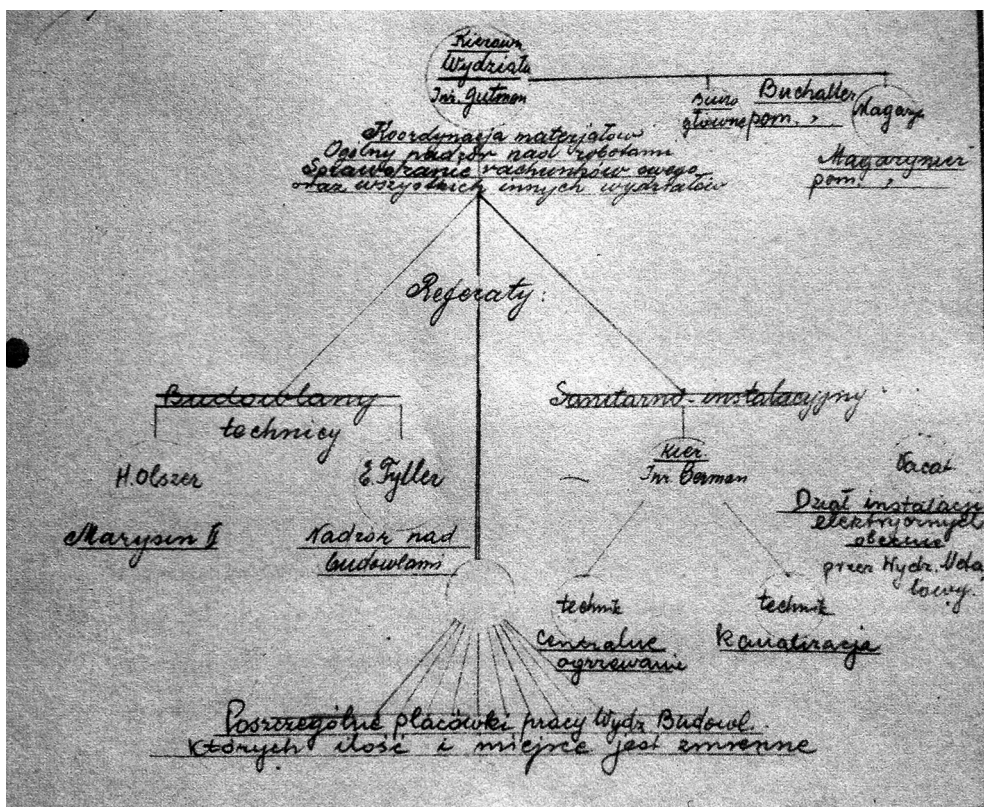 Kierown
Wydziału
Inż. Gutman
Biuro
główne
Buchalter
pom. "
Magazyn
Magazynier
pom. "
Koordynacja materjałów
Ogólny nadzór nad robotami
Sprawdzanie rachunków swego
oraz wszystkich innych wydziałów
Referaty:
Budowlany
technicy
H. Olszer
E. Fyller
Marysin II
Nadzór nad
budowlami
Sanitarno-instalacyjny
Kier.
Inż. Berman
Vacat
Dział instalacji
elektrycznych
obecnie
przez Wydz.
technik
Centralne
ogrzewanie
technik
Kanalizacja
Poszczególne placówki pracy Wydz Budowl.
których ilość i miejsce jest zmienne